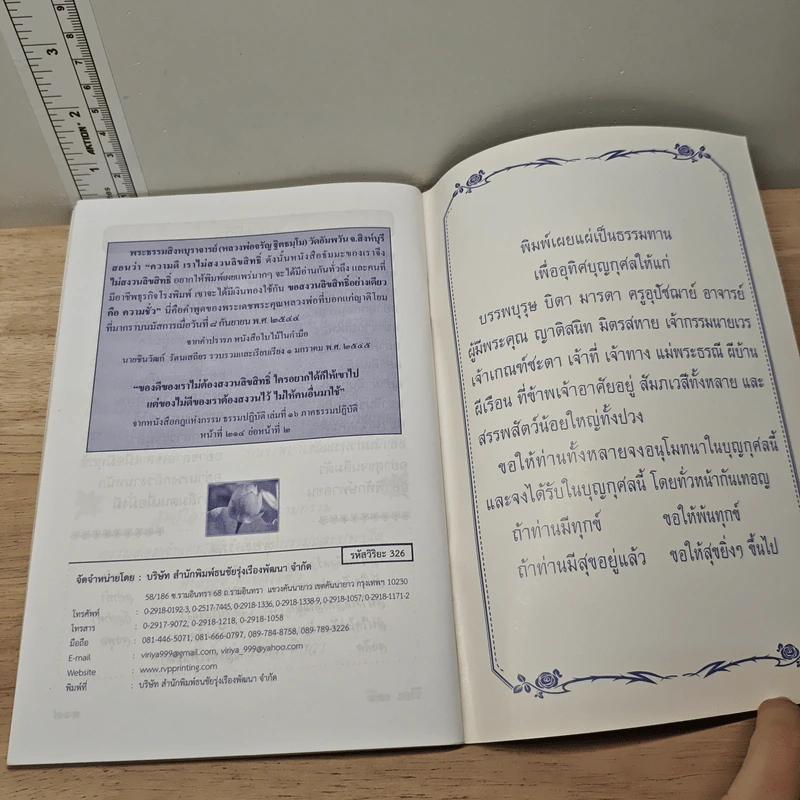 พระธรรมสิงหบุราจารย์ (หลวงพ่อจรัญ ฐิตธมฺโม) วัดอัมพวัน จ.สิงห์บุรี
สอนว่า “ความดี เราไม่สงวนลิขสิทธิ์” ดังนั้นหนังสือธัมมะของเราจึง
ไม่สงวนลิขสิทธิ์ อยากให้พิมพ์เผยแพร่มากๆ จะได้มีอ่านกันทั่วถึง และคนที่
มีอาชีพธุรกิจโรงพิมพ์ เขาจะได้มีเงินทองใช้กัน ขอสงวนลิขสิทธิ์อย่างเดียว
คือ ความชั่ว” นี่คือคำพูดของพระเดชพระคุณหลวงพ่อที่บอกแก่ญาติโยม
ที่มากราบนมัสการเมื่อวันที่ ๘ กันยายน พ.ศ. ๒๕๔๔
จากคำปรารภ หนังสือใบไม้ในกำมือ
นายชินวัฒก์ รัตนเสถียร รวบรวมและเรียบเรียง ๑ มกราคม พ.ศ. ๒๕๔๕
“ของดีของเราไม่ต้องสงวนลิขสิทธิ์ ใครอยากได้ก็ให้เขาไป
แต่ของไม่ดีของเราต้องสงวนไว้ ไม่ให้คนอื่นมาใช้”
จากหนังสือกฎแห่งกรรม ธรรมปฏิบัติ เล่มที่ ๑๖ ภาคธรรมปฏิบัติ
หน้าที่ ๒๑๔ ย่อหน้าที่ ๒
รหัสวิริยะ 326
จัดจำหน่ายโดย : บริษัท สำนักพิมพ์ธนชัยรุ่งเรืองพัฒนา จำกัด
58/186 ซ.รามอินทรา 68 ถ.รามอินทรา แขวงคันนายาว เขตคันนายาว กรุงเทพฯ 10230
โทรศัพท์ : 0-2918-0192-3, 0-2517-7445, 0-2918-1336, 0-2918-1338-9, 0-2918-1057, 0-2918-1171-2
โทรสาร : 0-2917-9072, 0-2918-1218, 0-2918-1058
มือถือ : 081-446-5071, 081-666-0797, 089-784-8758, 089-789-3226
E-mail : viriya999@gmail.com, viriya_999@yahoo.com
Website : www.rvpprinting.com
พิมพ์ที่ : บริษัท สำนักพิมพ์ธนชัยรุ่งเรืองพัฒนา จำกัด
พิมพ์เผยแผ่เป็นธรรมทาน
เพื่ออุทิศบุญกุศลให้แก่
บรรพบุรุษ บิดา มารดา ครูอุปัชฌาย์ อาจารย์
ผู้มีพระคุณ ญาติสนิท มิตรสหาย เจ้ากรรมนายเวร
เจ้าเกณฑ์ชะตา เจ้าที่ เจ้าทาง แม่พระธรณี ผีบ้าน
ผีเรือน ที่ข้าพเจ้าอาศัยอยู่ สัมภเวสีทั้งหลาย และ
สรรพสัตว์น้อยใหญ่ทั้งปวง
ขอให้ท่านทั้งหลายจงอนุโมทนาในบุญกุศลนี้
และจงได้รับในบุญกุศลนี้ โดยทั่วหน้ากันเทอญ
ถ้าท่านมีทุกข์ ขอให้พ้นทุกข์
ถ้าท่านมีสุขอยู่แล้ว ขอให้สุขยิ่งๆ ขึ้นไป
AKTION
1
2
3